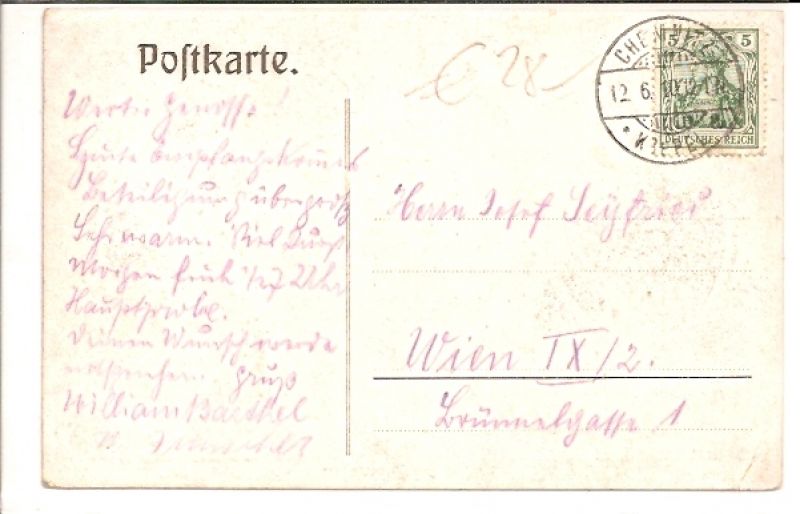 Postkarte.
€ 28
CHEMNITZ
12 6 10 12-1N
5 5
DEUTSCHES REICH
Werter Genosse!
Heute Empfangskommers
Beteiligung übergroß
Sehr warm. Viel Durst
Morgen früh ½7 Uhr
Hauptprobe.
Deinen Wunsch werde
entsprechen. Gruß
William Barthel
Herrn Josef Seyfried
Wien IX/2.
Brünnelgasse 1